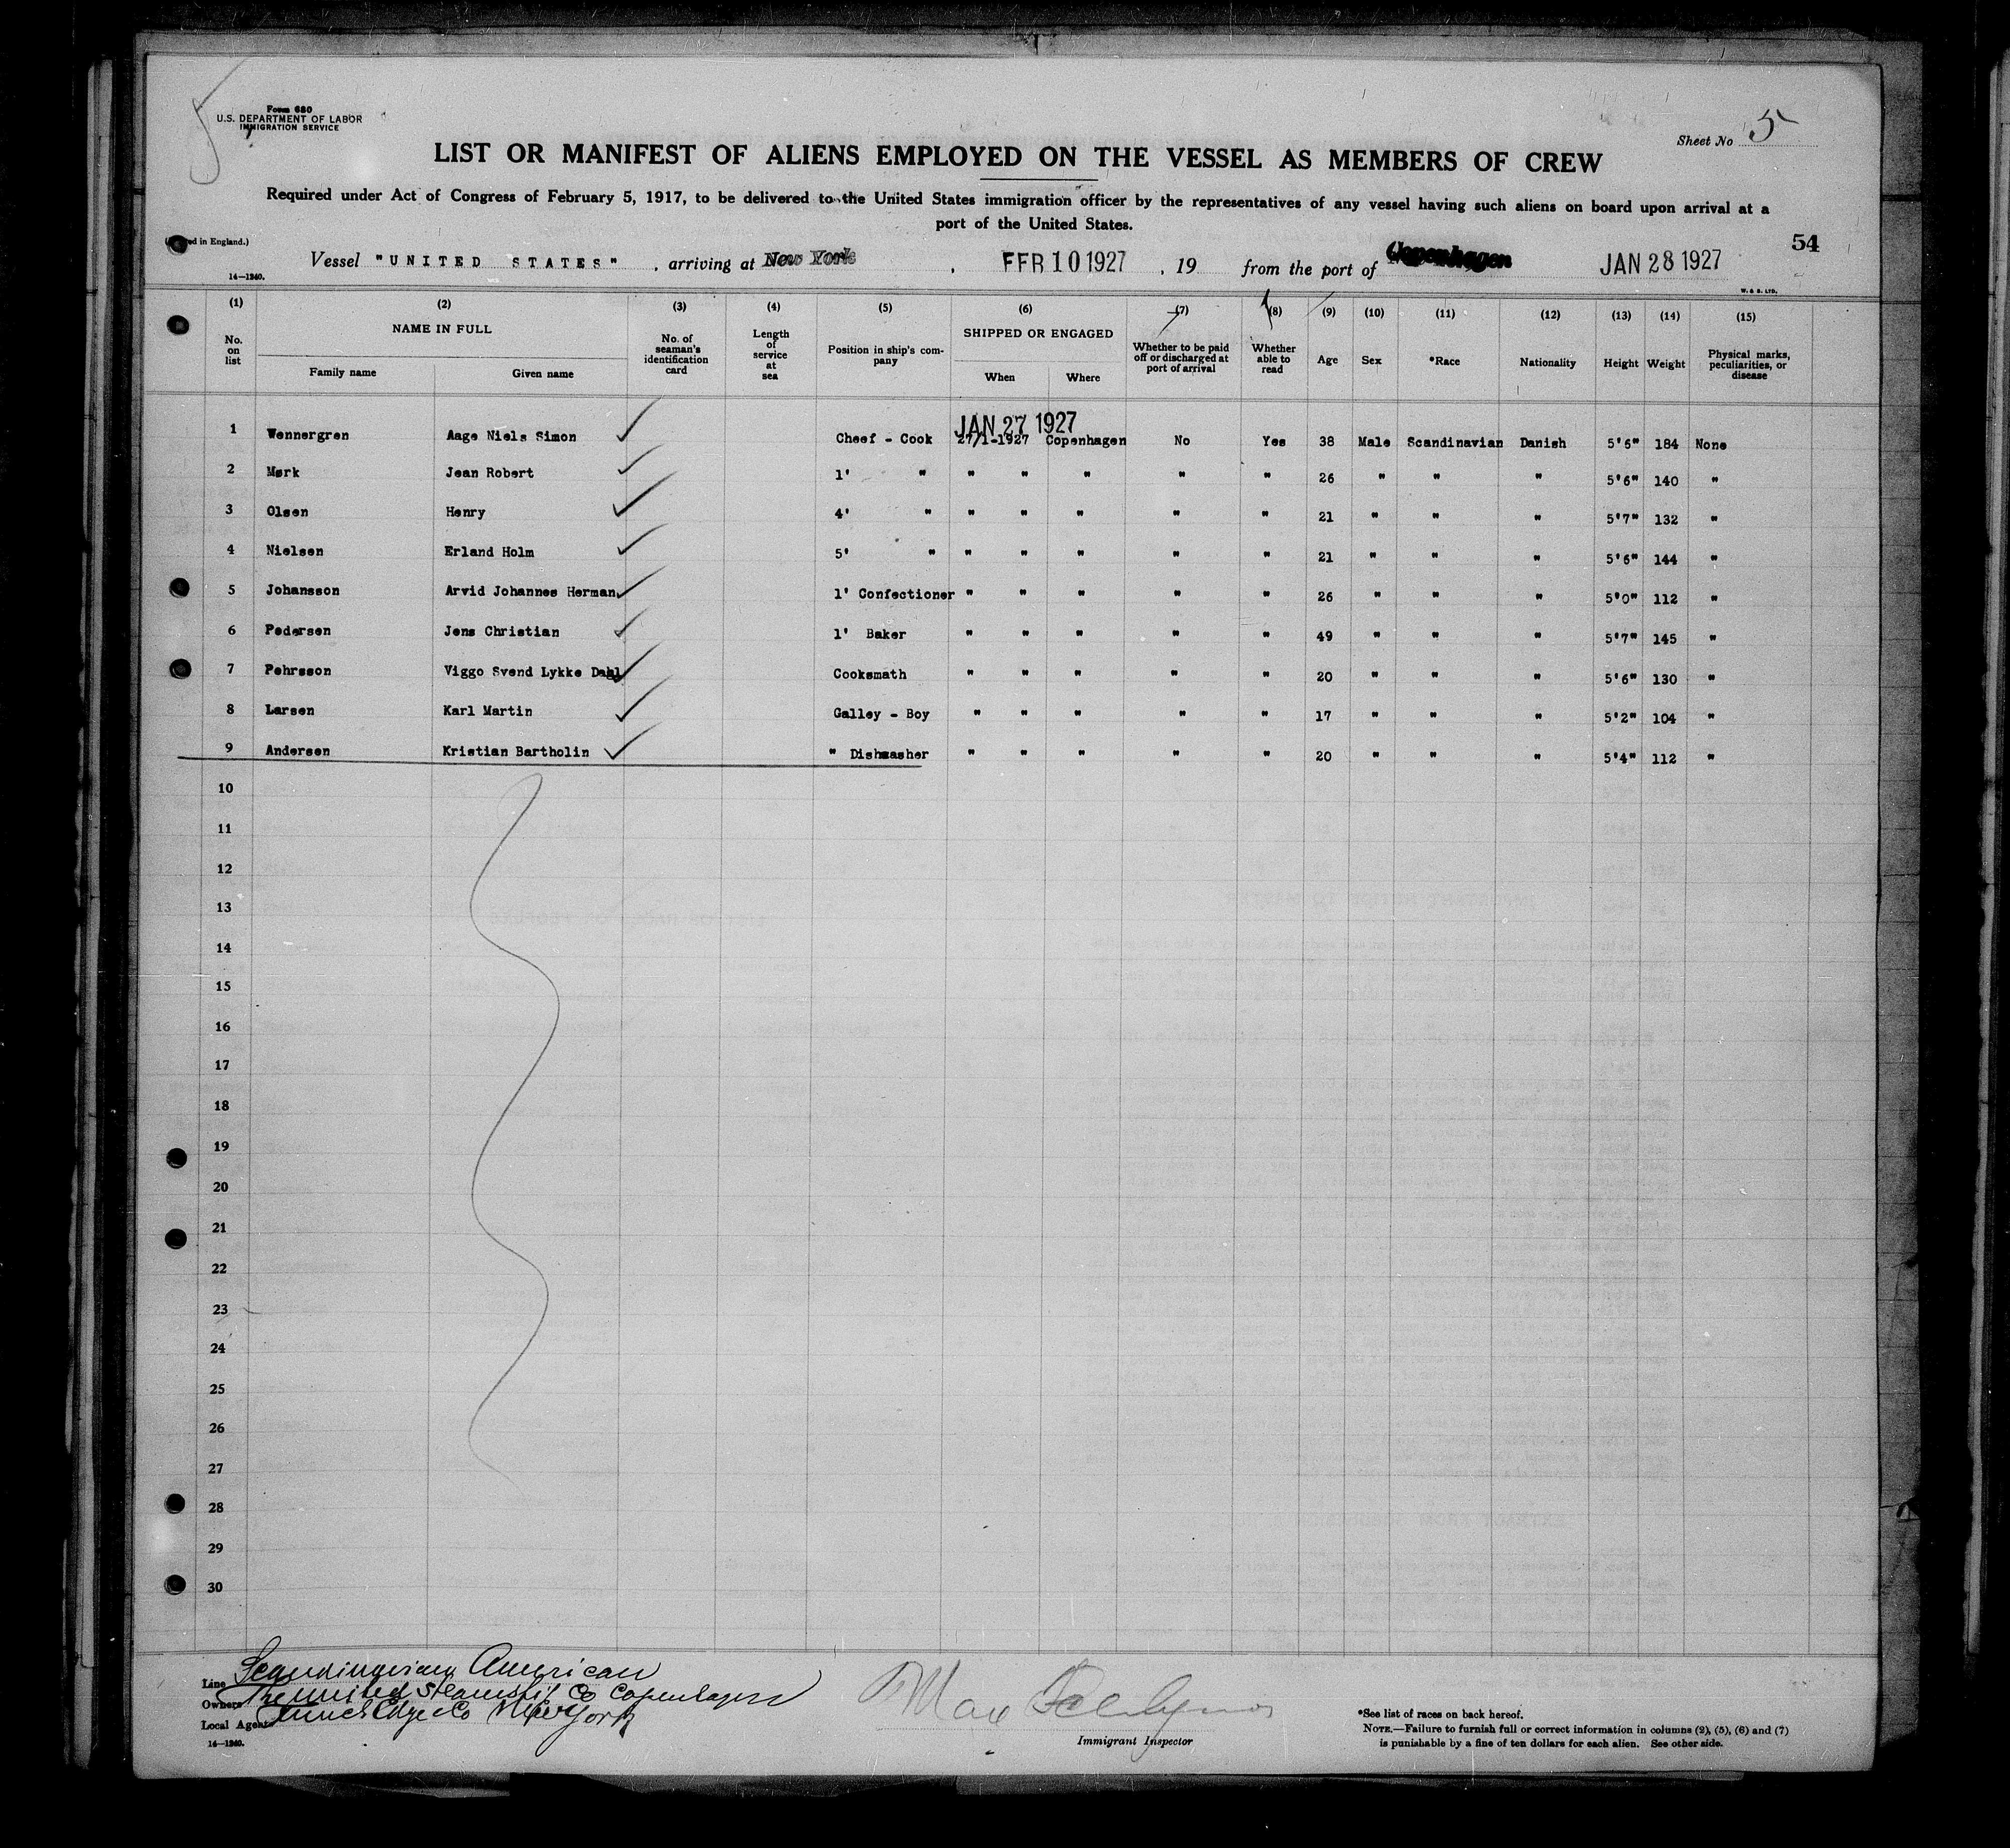 Form 680
U.S. DEPARTMENT OF LABOR
IMMIGRATION SERVICE
Sheet No 5
LIST OR MANIFEST OF ALIENS EMPLOYED ON THE VESSEL AS MEMBERS OF CREW
Required under Act of Congress of February 5, 1917, to be delivered to the United States immigration officer by the representatives of any vessel having such aliens on board upon arrival at a
port of the United States.
in England.)
54
Vessel "UNITED STATES", arriving at New York, FEB 10 1927, 19 from the port of Copenhagen JAN 28 1927
14—1240.
W. & S. LTD.
(1) (2) (3) (4) (5) (6) (7) (8) (9) (10) (11) (12) (13) (14) (15)
No. on list NAME IN FULL Family name Given name No. of seaman's identification card Length of service at sea Position in ship's company SHIPPED OR ENGAGED When Where Whether to be paid off or discharged at port of arrival Whether able to read Age Sex *Race Nationality Height Weight Physical marks, peculiarities, or disease
JAN 27 1927
1 Wennergren Aage Niels Simon Cheef - Cook 27/1-1927 Copenhagen No Yes 38 Male Scandinavian Danish 5'6" 184 None
2 Mørk Jean Robert 1' " " " " " " 26 " " " 5'6" 140 "
3 Olsen Henry 4' " " " " " " 21 " " " 5'7" 132 "
4 Nielsen Erland Holm 5' " " " " " " 21 " " " 5'6" 144 "
5 Johansson Arvid Johannes Herman 1' Confectioner " " " " " 26 " " " 5'0" 112 "
6 Pedersen Jens Christian 1' Baker " " " " " 49 " " " 5'7" 145 "
7 Pehrsson Viggo Svend Lykke Dahl Cooksmath " " " " " 20 " " " 5'6" 130 "
8 Larsen Karl Martin Galley - Boy " " " " " 17 " " " 5'2" 104 "
9 Andersen Kristian Bartholin " Dishwasher " " " " " 20 " " " 5'4" 112 "
10
11
12
13
14
15
16
17
18
19
20
21
22
23
24
25
26
27
28
29
30
Line Scandinavian American
Owners The United Steamship Co Copenhagen
Local Agent Co New York
14—1240.
Max
Immigrant Inspector
*See list of races on back hereof.
NOTE.—Failure to furnish full or correct information in columns (2), (5), (6) and (7)
is punishable by a fine of ten dollars for each alien. See other side.